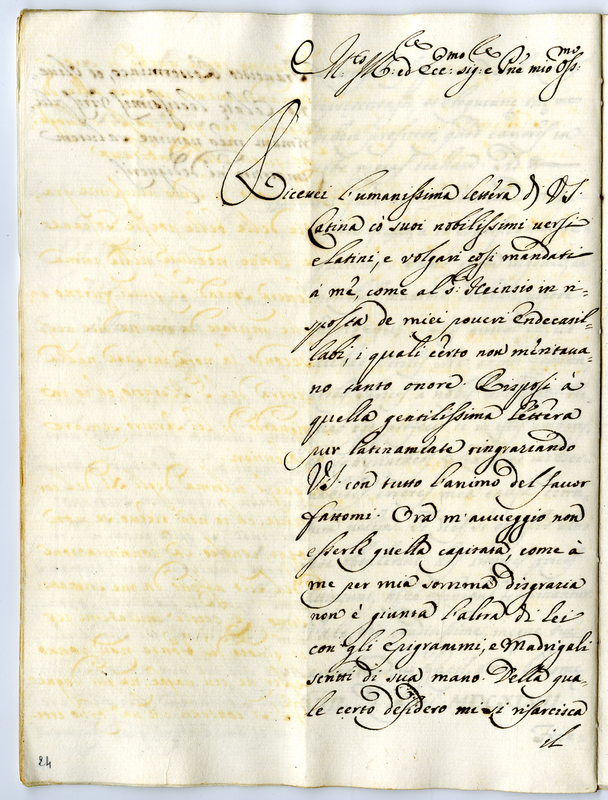 M.to Ill.re ed Ecc.mo sig.re e P'ne mio Oss.mo
Riceuei l'umanissima lettera di V.S.
Latina cò suoi nobilissimi versi
e latini, e volgari così mandati
à me, come al S.r Heinsio in ri=
sposta de miei poueri Endecasil=
labi, i quali certo non meritaua=
no tanto onore. Risposi à
quella gentilissima lettera
pur latinamente ringraziando
V.S. con tutto l'animo del fauor
fattomi. Ora m'auueggio non
esserle quella capitata, come à
me per mia somma disgrazia
non è giunta l'altra di lei
con gli Epigrammi, e Madrigali
scritti di sua mano. Della qua=
le certo desidero mi si risarcisca
il
24